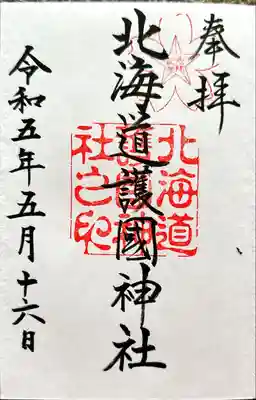 奉拝
北海道護國神社
北海道護國神社之印
令和五年五月十六日